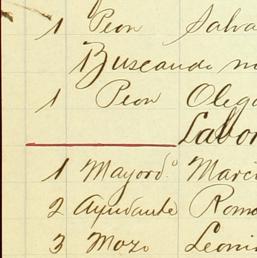 1 Peon Salva
Buscando m
1 Peon Olega
Labor
1 Mayord.º Marci
2 Ayudante Roma
3 Mozo Leoni